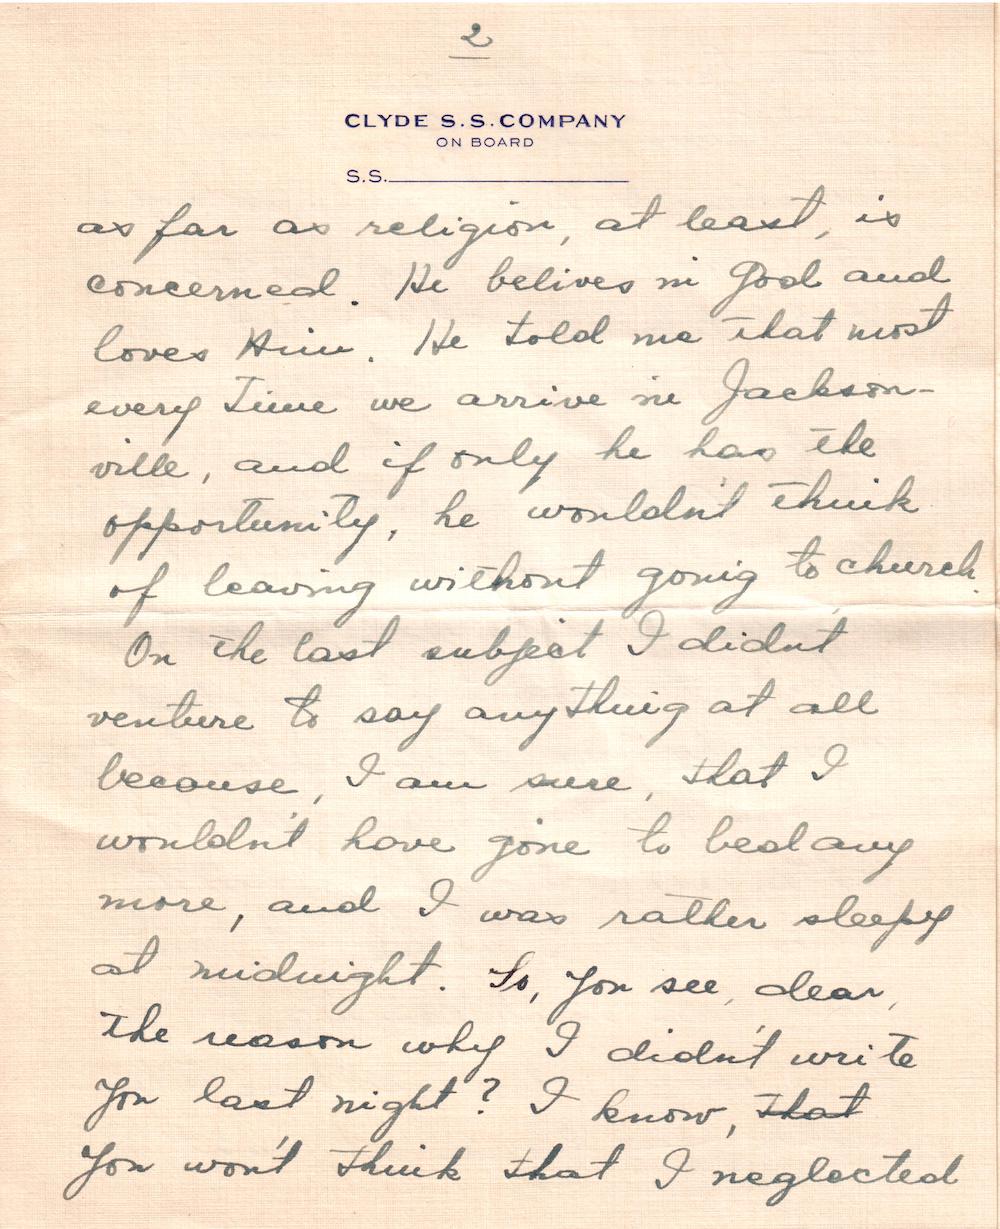 2
CLYDE S.S. COMPANY
ON BOARD
S.S.
as far as religion, at least, is
concerned. He belives in God and
loves Him. He told me that most
every time we arrive in Jackson-
ville, and if only he has the
opportunity, he wouldn't think
of leaving without going to church.
On the last subject I didnt
venture to say anything at all
because, I am sure, that I
wouldn't have gone to bed any
more, and I was rather sleepy
at midnight. So, you see, dear,
the reason why I didn't write
you last night? I know, that
you won't think that I neglected